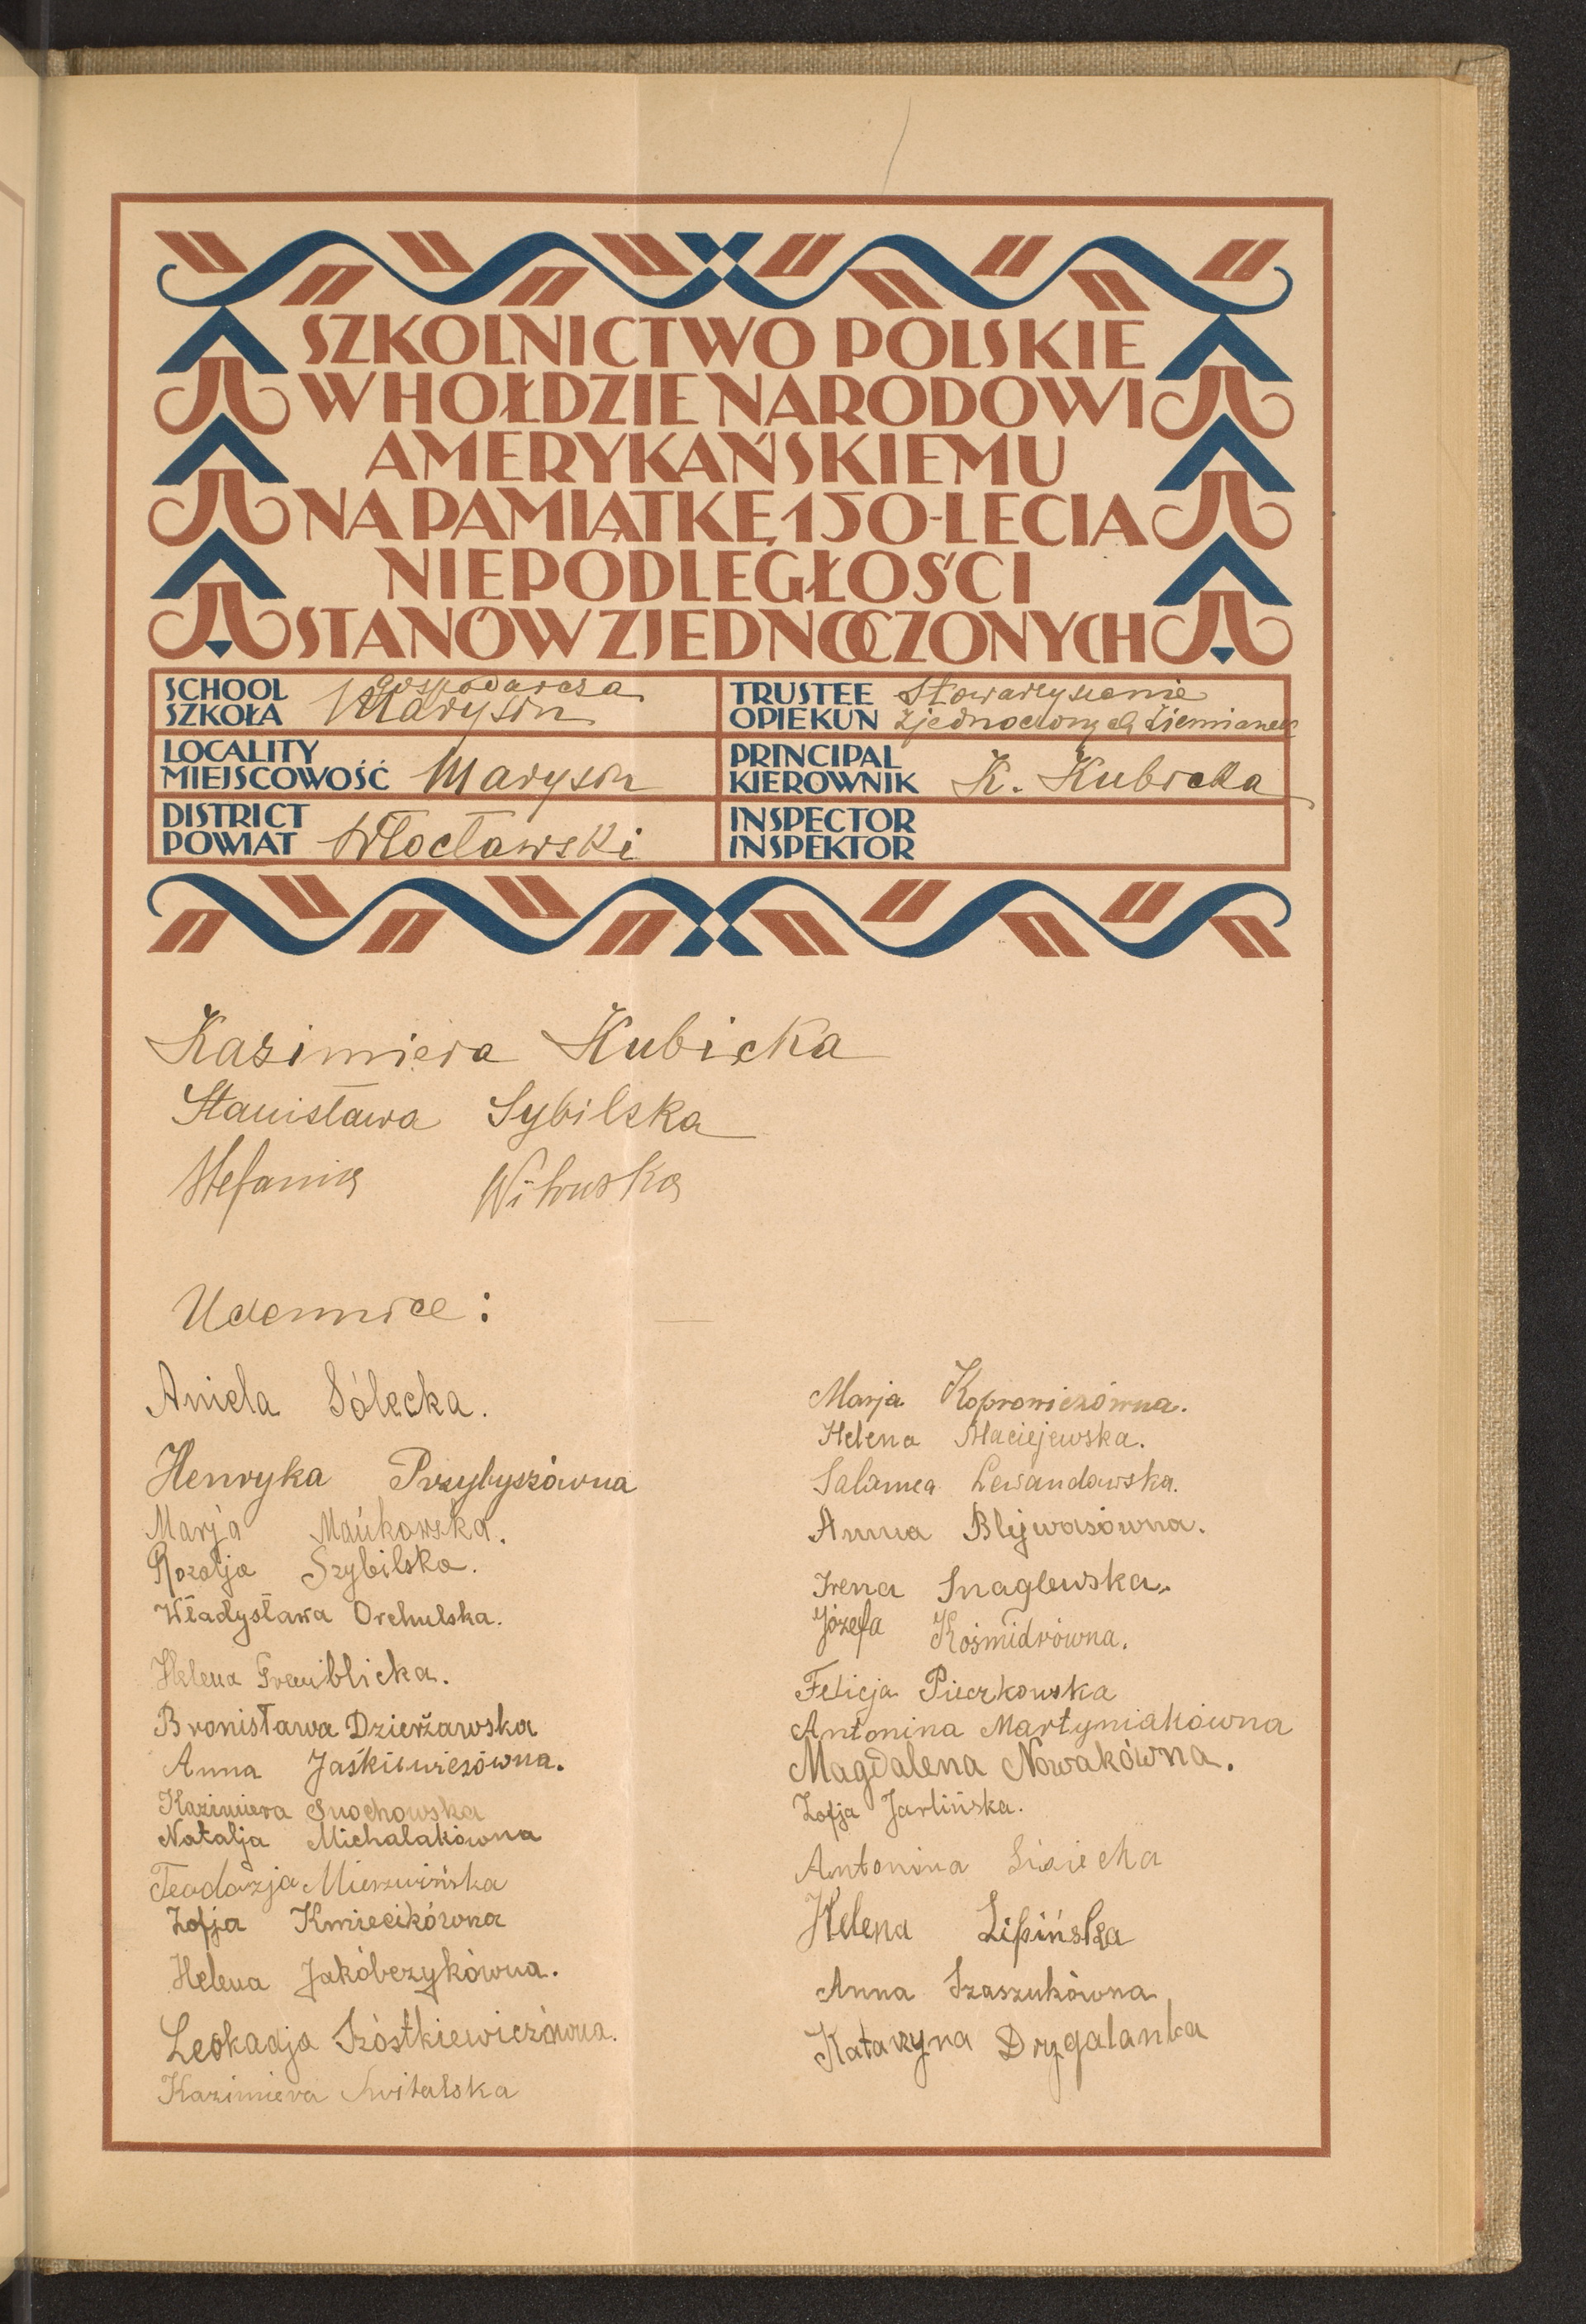 SZKOLNICTWO POLSKIE
W HOŁDZIE NARODOWI
AMERYKAŃSKIEMU
NA PAMIĄTKĘ 150-LECIA
NIEPODLEGŁOŚCI
STANÓW ZJEDNOCZONYCH
SCHOOL gospodarcza
SZKOŁA Marysin
TRUSTEE Stowarzyszenie
OPIEKUN Zjednoczonych Ziemianek
LOCALITY
MIEJSCOWOŚĆ Marysin
PRINCIPAL
KIEROWNIK K. Kubicka
DISTRICT
POWIAT Włocławski
INSPECTOR
INSPEKTOR
Kazimiera Kubicka
Stanisława Sybilska
Stefania Wituska
Uczennice:
Aniela Sólecka.
Henryka Przybyszówna
Marja Mańkowska.
Rozalja Szybilska.
Władysława Orchulska.
Helena
Bronisława Dzierżawska
Anna Jaśkiewiczówna.
Kazimiera Suchowska
Natalja Michalakówna
Teodozja Mierzwińska
Zofja Kmiecikówna
Helena Jakóbczykówna.
Leokadja Szóstkiewiczówna.
Kazimiera Kwitalska
Marja Koprowiczówna.
Helena Maciejewska.
Salomea Lewandowska.
Anna Blejwasówna.
Irena Snaglewska.
Józefa Kośmidrówna.
Felicja Pieczkowska
Antonina Martyniakówna
Magdalena Nowakówna.
Zofja Jarlińska.
Antonina Lisiecka
Helena Lipińska
Anna Szaszukówna
Katarzyna Drygalanka